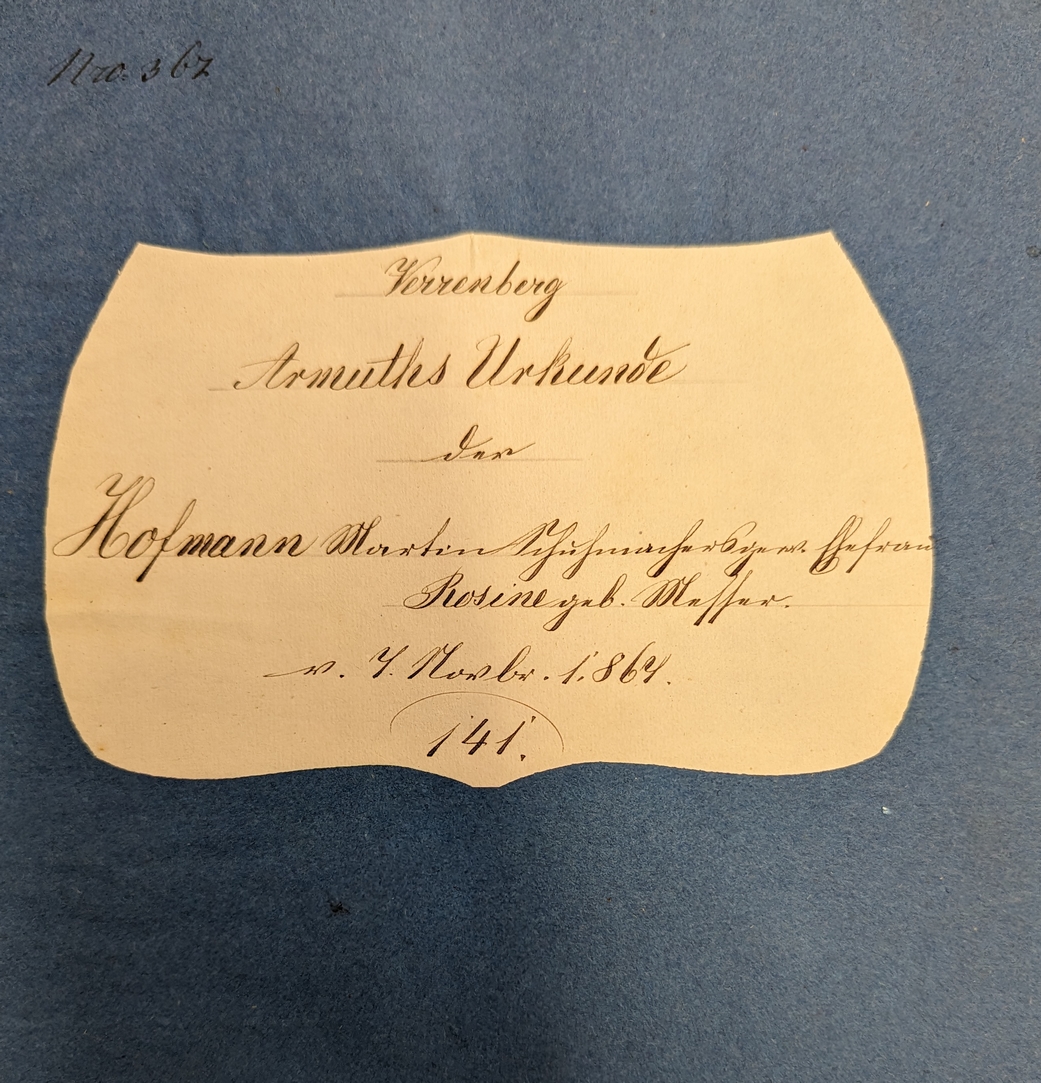 Nro. 362
Verrenberg
Armuths Urkunde
der
Hofmann Martin Schuhmachers gew. Ehefrau
Rosine geb. Messer.
v. 7. Novbr. 1867.
141.